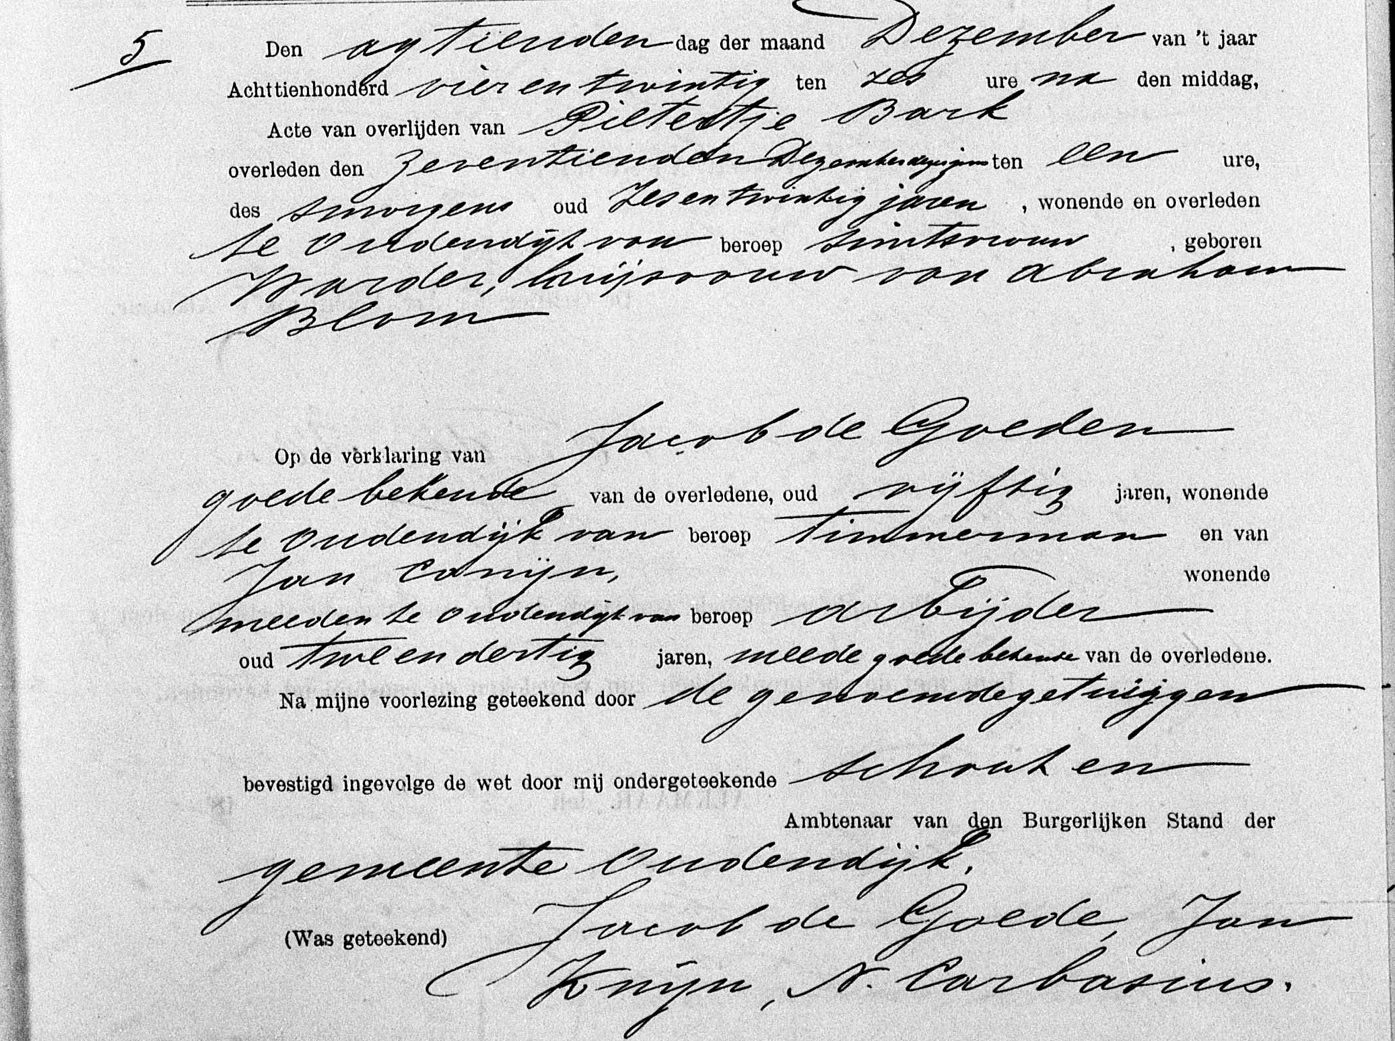 5
Den agtienden dag der maand Dezember van 't jaar
Achttienhonderd vier en twintig ten zes ure na den middag,
Acte van overlijden van Pietertje Bark
overleden den Zeventienden Dezember dezer jaars ten een ure,
des smorgens oud Zes en twintig jaren, wonende en overleden
te Oudendijk van beroep , geboren
Warder, huijsvrouw van Abraham
Blom
Op de verklaring van Jacob de Goeden
goede bekende van de overledene, oud vijftig jaren, wonende
te Oudendijk van beroep Timmerman en van
Jan Conijn, wonende
meeden te Oudendijk van beroep arbijder
oud twee en dertig jaren, meede goede bekende van de overledene.
Na mijne voorlezing geteekend door de genoemde getuijgen
bevestigd ingevolge de wet door mij ondergeteekende schout en
Ambtenaar van den Burgerlijken Stand der
gemeente Oudendijk.
(Was geteekend) Jacob de Goede, Jan
Knijn, N. Carbasius.